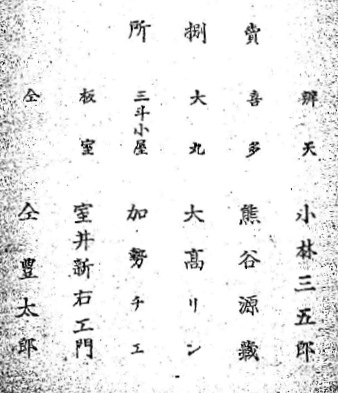 賣捌所
辨天 小林三五郎
喜多 熊谷源藏
大丸 大高リン
三斗小屋 加勢チエ
板室 室井新右エ門
仝 仝豊太郎